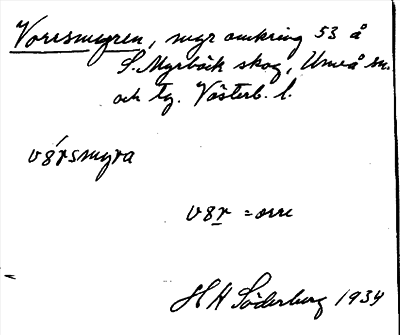 Vorrsmyren, myr omkring 53 å
S. Myrbäck skog, Umeå sn.
och tg. Västerb. l.
vȣ́rsmyra
vȣr = orre
H H Söderberg 1934